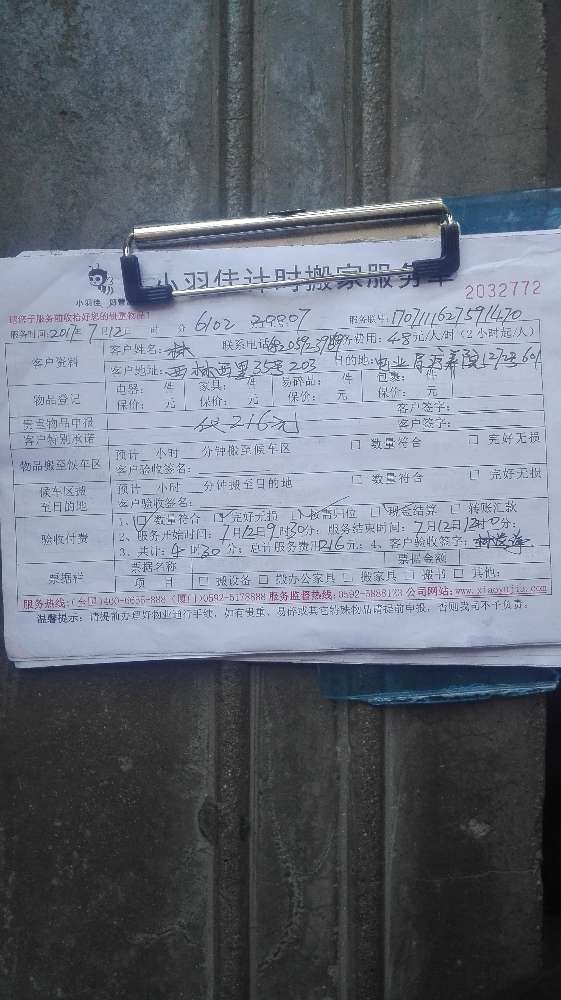 小羽佳计时搬家服务单
小羽佳
2032772
请您于服务前收拾好您的贵重物品!
服务时间:2017年7月12日 时 分 6102 39807 服务账号:170711162759470
客户资料 客户姓名:林 联系电话 费用:48元/人/时(2小时起/人)
客户地址:西林西里35号203 目的地:
物品登记 电器: 件 家具: 件 易碎品: 件 包裹: 件
保价: 元 保价: 元 保价: 元 客户签字:
贵重物品申报 仅216元 客户签字:
客户特别承诺
物品搬至候车区 预计 小时 分钟搬至候车区 □ 数量符合 □ 完好无损
客户验收签名:
候车区搬至目的地 预计 小时 分钟搬至目的地 □ 数量符合 □ 完好无损
客户验收签名:
验收付费 1、☑数量符合 ☑完好无损 ☑按需归位 □ 现金结算 □ 转账汇款
2、服务开始时间:7月12日9时30分;服务结束时间:7月12日12时0分;
3、共计:4时30分;总计服务费用216元;4、客户验收签字:
票据栏 票据名称 票据金额
项 目 □ 搬设备 □ 搬办公家具 □ 搬家具 □ 搬钢琴 □ 其他:
服务热线:(全国)400-6655-888 (厦门)0592-5178888 服务监督热线:0592-5888123 公司网站:www.xiaoyujia.com
温馨提示:请提前办理好物业进行手续,如有贵重、易碎或其它特殊物品请提前申报,否则我司不予负责。